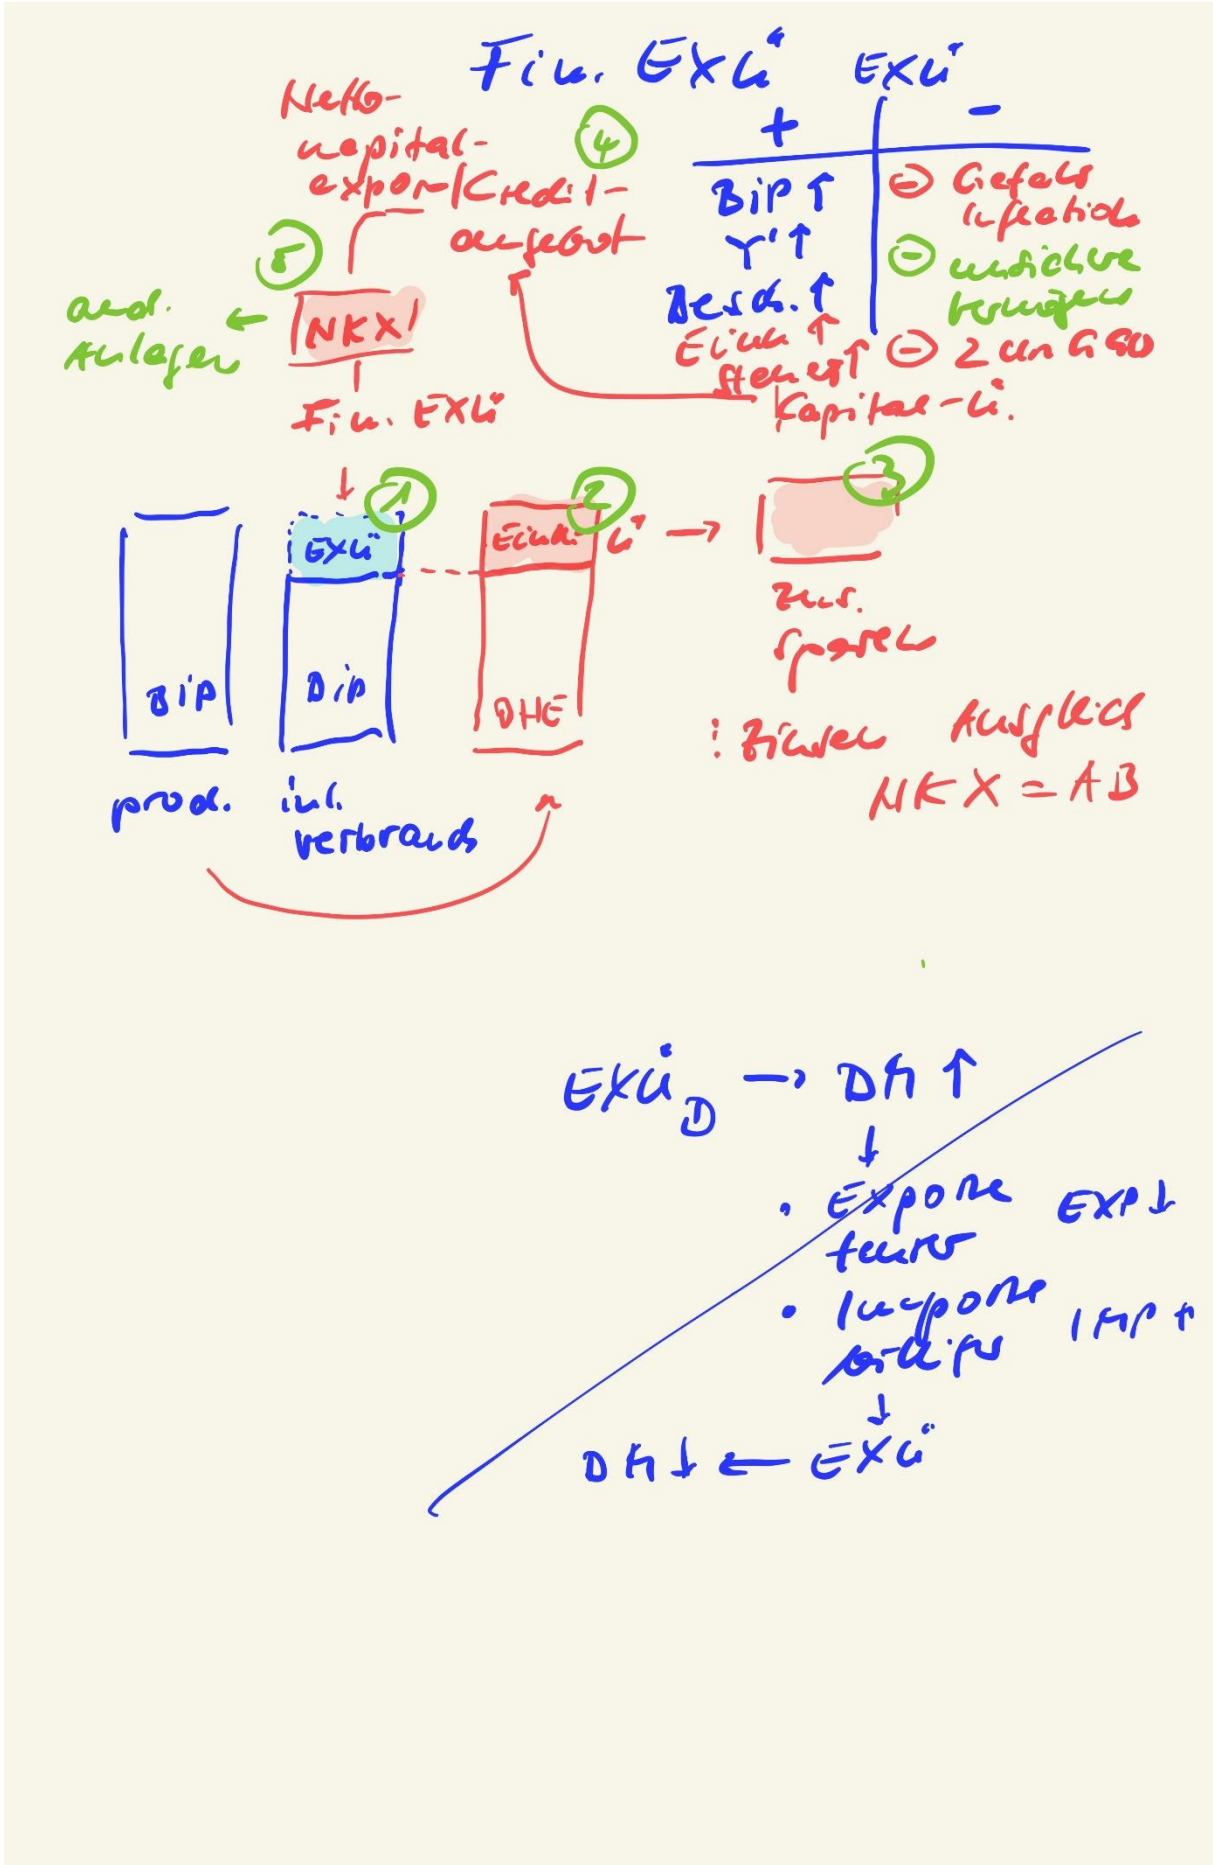 Fin. EXÜ
EXÜ
+
-
BiP ↑
Y ↑
Besch. ↑
Eink ↑
Steuer ↑
⊖ Gefahr
Inflation
⊖ unsichere
Vermögens
⊖
Kapital-Ü.
Netto-
kapital-
export/Credit-
angebot
4
5
and.
Anlagen
←
NKX
Fin. EXÜ
↓
1
EXÜ
2
Eink.
Ü →
3
zus.
sparen
BiP
BiP
DHE
prod.
inl.
verbrauch
: Zinsen
Ausgleich
NKX = AB
EXÜ D → DM ↑
↓
• Exporte
teurer
EXP ↓
• Importe
billiger
IMP ↑
↓
DM ↓ ← EXÜ